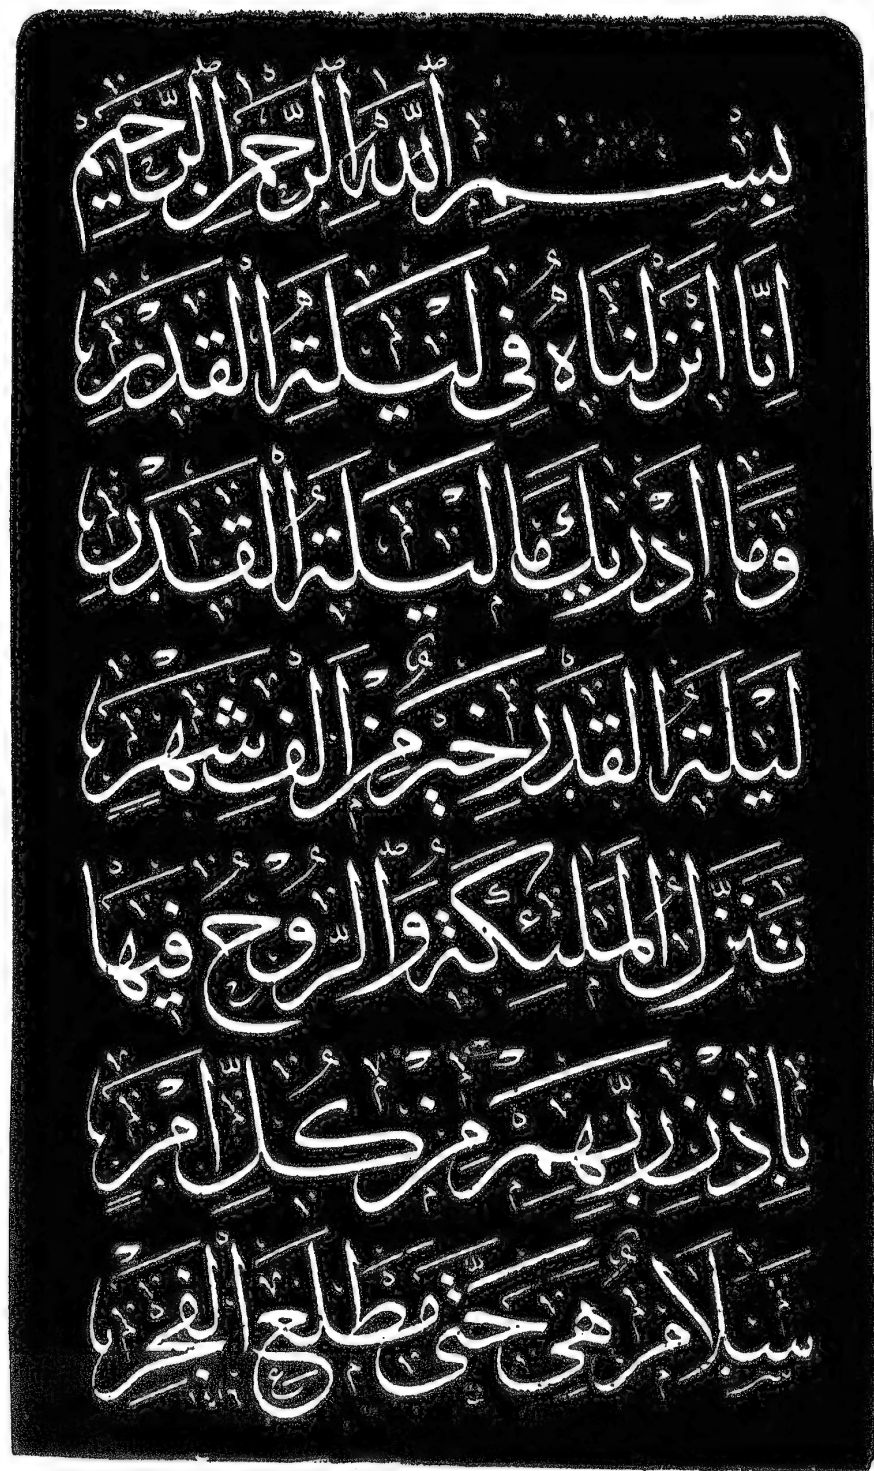 بِسْمِ اللّٰهِ الرَّحْمٰنِ الرَّحِيمِ
اِنَّا اَنْزَلْنَاهُ فِى لَيْلَةِ الْقَدْرِ
وَمَا اَدْرٰيكَ مَا لَيْلَةُ الْقَدْرِ
لَيْلَةُ الْقَدْرِ خَيْرٌ مِنْ اَلْفِ شَهْرٍ
تَنَزَّلُ الْمَلٰئِكَةُ وَالرُّوحُ فِيهَا
بِاِذْنِ رَبِّهِمْ مِنْ كُلِّ اَمْرٍ
سَلَامٌ هِىَ حَتّٰى مَطْلَعِ الْفَجْرِ